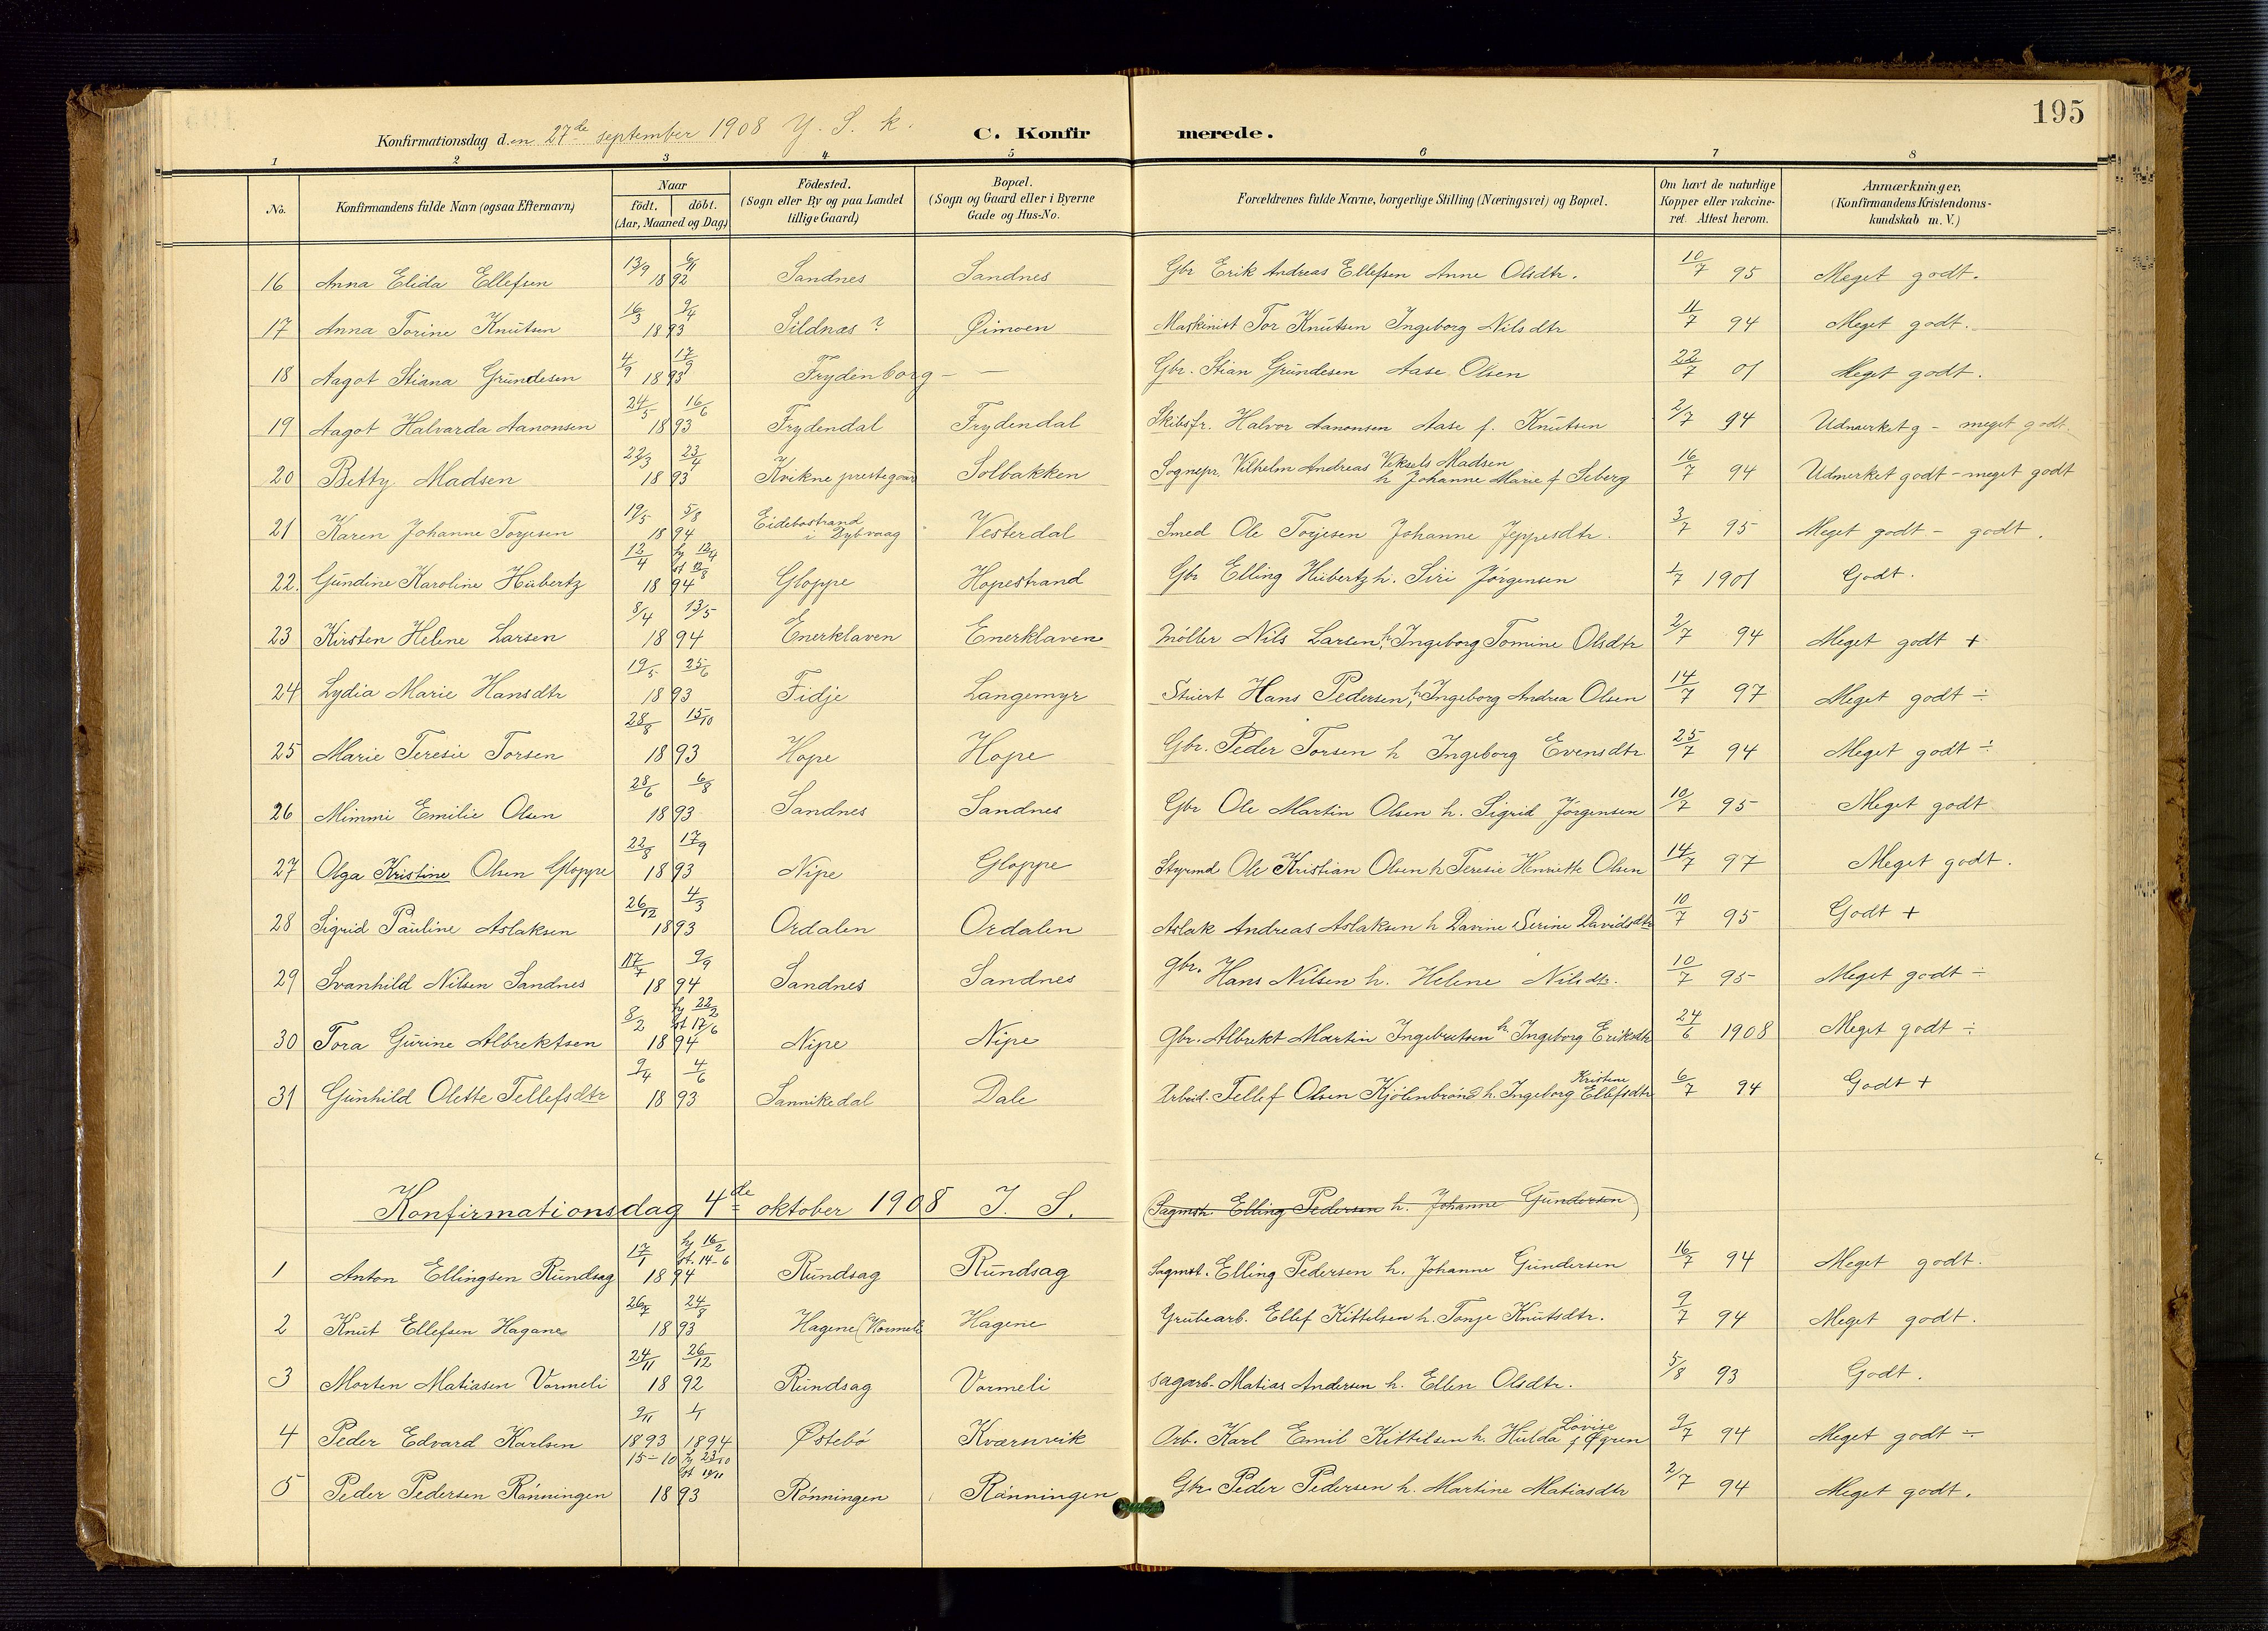 195
Konfirmationsdag den 27de september 1908 Y. S. k. C. Konfirmerede.
1 2 3 4 5 6 7 8
No. Konfirmandens fulde Navn (ogsaa Efternavn) Naar födt. döbt. (Aar, Maaned og Dag) Födested. (Sogn eller By og paa Landet tillige Gaard) Bopæl. (Sogn og Gaard eller i Byerne Gade og Hus-No. Forældrenes fulde Navne, borgerlige Stilling (Næringsvei) og Bopæl. Om havt de naturlige Kopper eller vakcineret. Attest herom. Anmærkninger, (Konfirmandens Kristendomskundskab m. V.)
16 Anna Elida Ellefsen 13/9 6/11 1892 Sandnes Sandnes Gbr Erik Andreas Ellefsen Anne Olsdtr. 10/7 95 Meget godt.
17 Anna Torine Knutsen 16/3 9/4 1893 Sildnæs? Øimoen Maskinist Tor Knutsen Ingeborg Nilsdtr 11/7 94 Meget godt.
18 Aagot Stiana Grundesen 4/9 17/9 1893 Frydenborg — — Gbr. Stian Grundesen Aase Olsen 22/7 01 Meget godt.
19 Aagot Halvarda Aanonsen 24/5 16/6 1893 Frydendal Frydendal Skibsfr. Halvor Aanonsen Aase f. Knutsen 2/7 94 Udmerket g - meget godt
20 Betty Madsen 22/3 23/4 1893 Kvikne prestegaard Solbakken Sognepr. Vilhelm Andreas Veksels Madsen h Johanne Marie f Seberg 16/7 94 Udmerket godt - meget godt
21 Karen Johanne Torjesen 19/5 5/8 1894 Eidebostrand i Dybvaag Vesterdal Smed Ole Torjesen Johanne Jeppesdtr. 3/7 95 Meget godt - godt.
22. Gundine Karoline Hubertz 12/4 1894 Gloppe Hopestrand Gbr Elling Hubertz h. Siri Jørgensen 1/7 1901 Godt.
23 Kirsten Helene Larsen 8/4 13/5 1894 Enerklaven Enerklaven Möller Nils Larsen h. Ingeborg Tomine Olsdtr 2/7 94 Meget godt +
24 Lydia Marie Hansdtr 19/5 25/6 1893 Fidje Langemyr Stuert Hans Pedersen, h Ingeborg Andrea Olsen 14/7 97 Meget godt ÷
25 Marie Teresie Torsen 28/8 15/10 1893 Hope Hope Gbr. Peder Torsen h Ingeborg Evensdtr 25/7 94 Meget godt ÷
26 Mimmi Emilie Olsen 28/6 6/8 1893 Sandnes Sandnes Gbr Ole Martin Olsen h. Sigrid Jørgensen 10/7 95 Meget godt
27 Olga Kristine Olsen Gloppe 22/8 17/9 1893 Nipe Gloppe Styrmd Ole Kristian Olsen h Teresie Henriette Olsen 14/7 97 Meget godt.
28 Sigrid Pauline Aslaksen 26/12 4/3 1893 Ordalen Ordalen Aslak Andreas Aslaksen h Davine Serine Davidsdtr 10/7 95 Godt +
29 Svanhild Nilsen Sandnes 17/7 9/9 1894 Sandnes Sandnes Gbr. Hans Nilsen h. Helene Nilsdtr. 10/7 95 Meget godt ÷
30 Tora Gurine Albrektsen 8/2 hj 22/2 st 17/6 1894 Nipe Nipe Gbr. Albrekt Martin Ingebretsen h. Ingeborg Eriksdtr 24/6 1908 Meget godt ÷
31 Gunhild Olette Tellefsdtr 9/4 4/6 1893 Sannikedal Dale Arbeid. Tellef Olsen Kjölenbrönd h. Ingeborg Kristene Ellefsdtr 6/7 94 Godt +
Konfirmationsdag 4de oktober 1908 J. S. (Sagmst. Elling Pedersen h. Johanne Gundersen)
1 Anton Ellingsen Rundsag 17/1 hj 16/2 st. 14-6 1894 Rundsag Rundsag Sagmst. Elling Pedersen h. Johanne Gundersen 16/7 94 Meget godt.
2 Knut Ellefsen Hagane 26/7 24/8 1893 Hagene (Vormeli Hagene Grubearb. Ellef Kittelsen h. Tonje Knutsdtr. 9/7 94 Meget godt.
3 Morten Matiasen Vormeli 24/11 26/12 1892 Rundsag Vormeli Sagarb. Matias Andersen h. Ellen Olsdtr. 5/8 93 Godt.
4 Peder Edvard Karlsen 9/11 1/1 1893 1894 Østebø Kvarnvik Arb. Karl Emil Kittilsen h. Hulda Lovise f Øgren 9/7 94 Meget godt ÷
5 Peder Pedersen Rønningen 15-10 hj 23/10 1893 Rønningen Rønningen Gbr. Peder Pedersen h. Martine Matiasdtr 2/7 94 Meget godt.